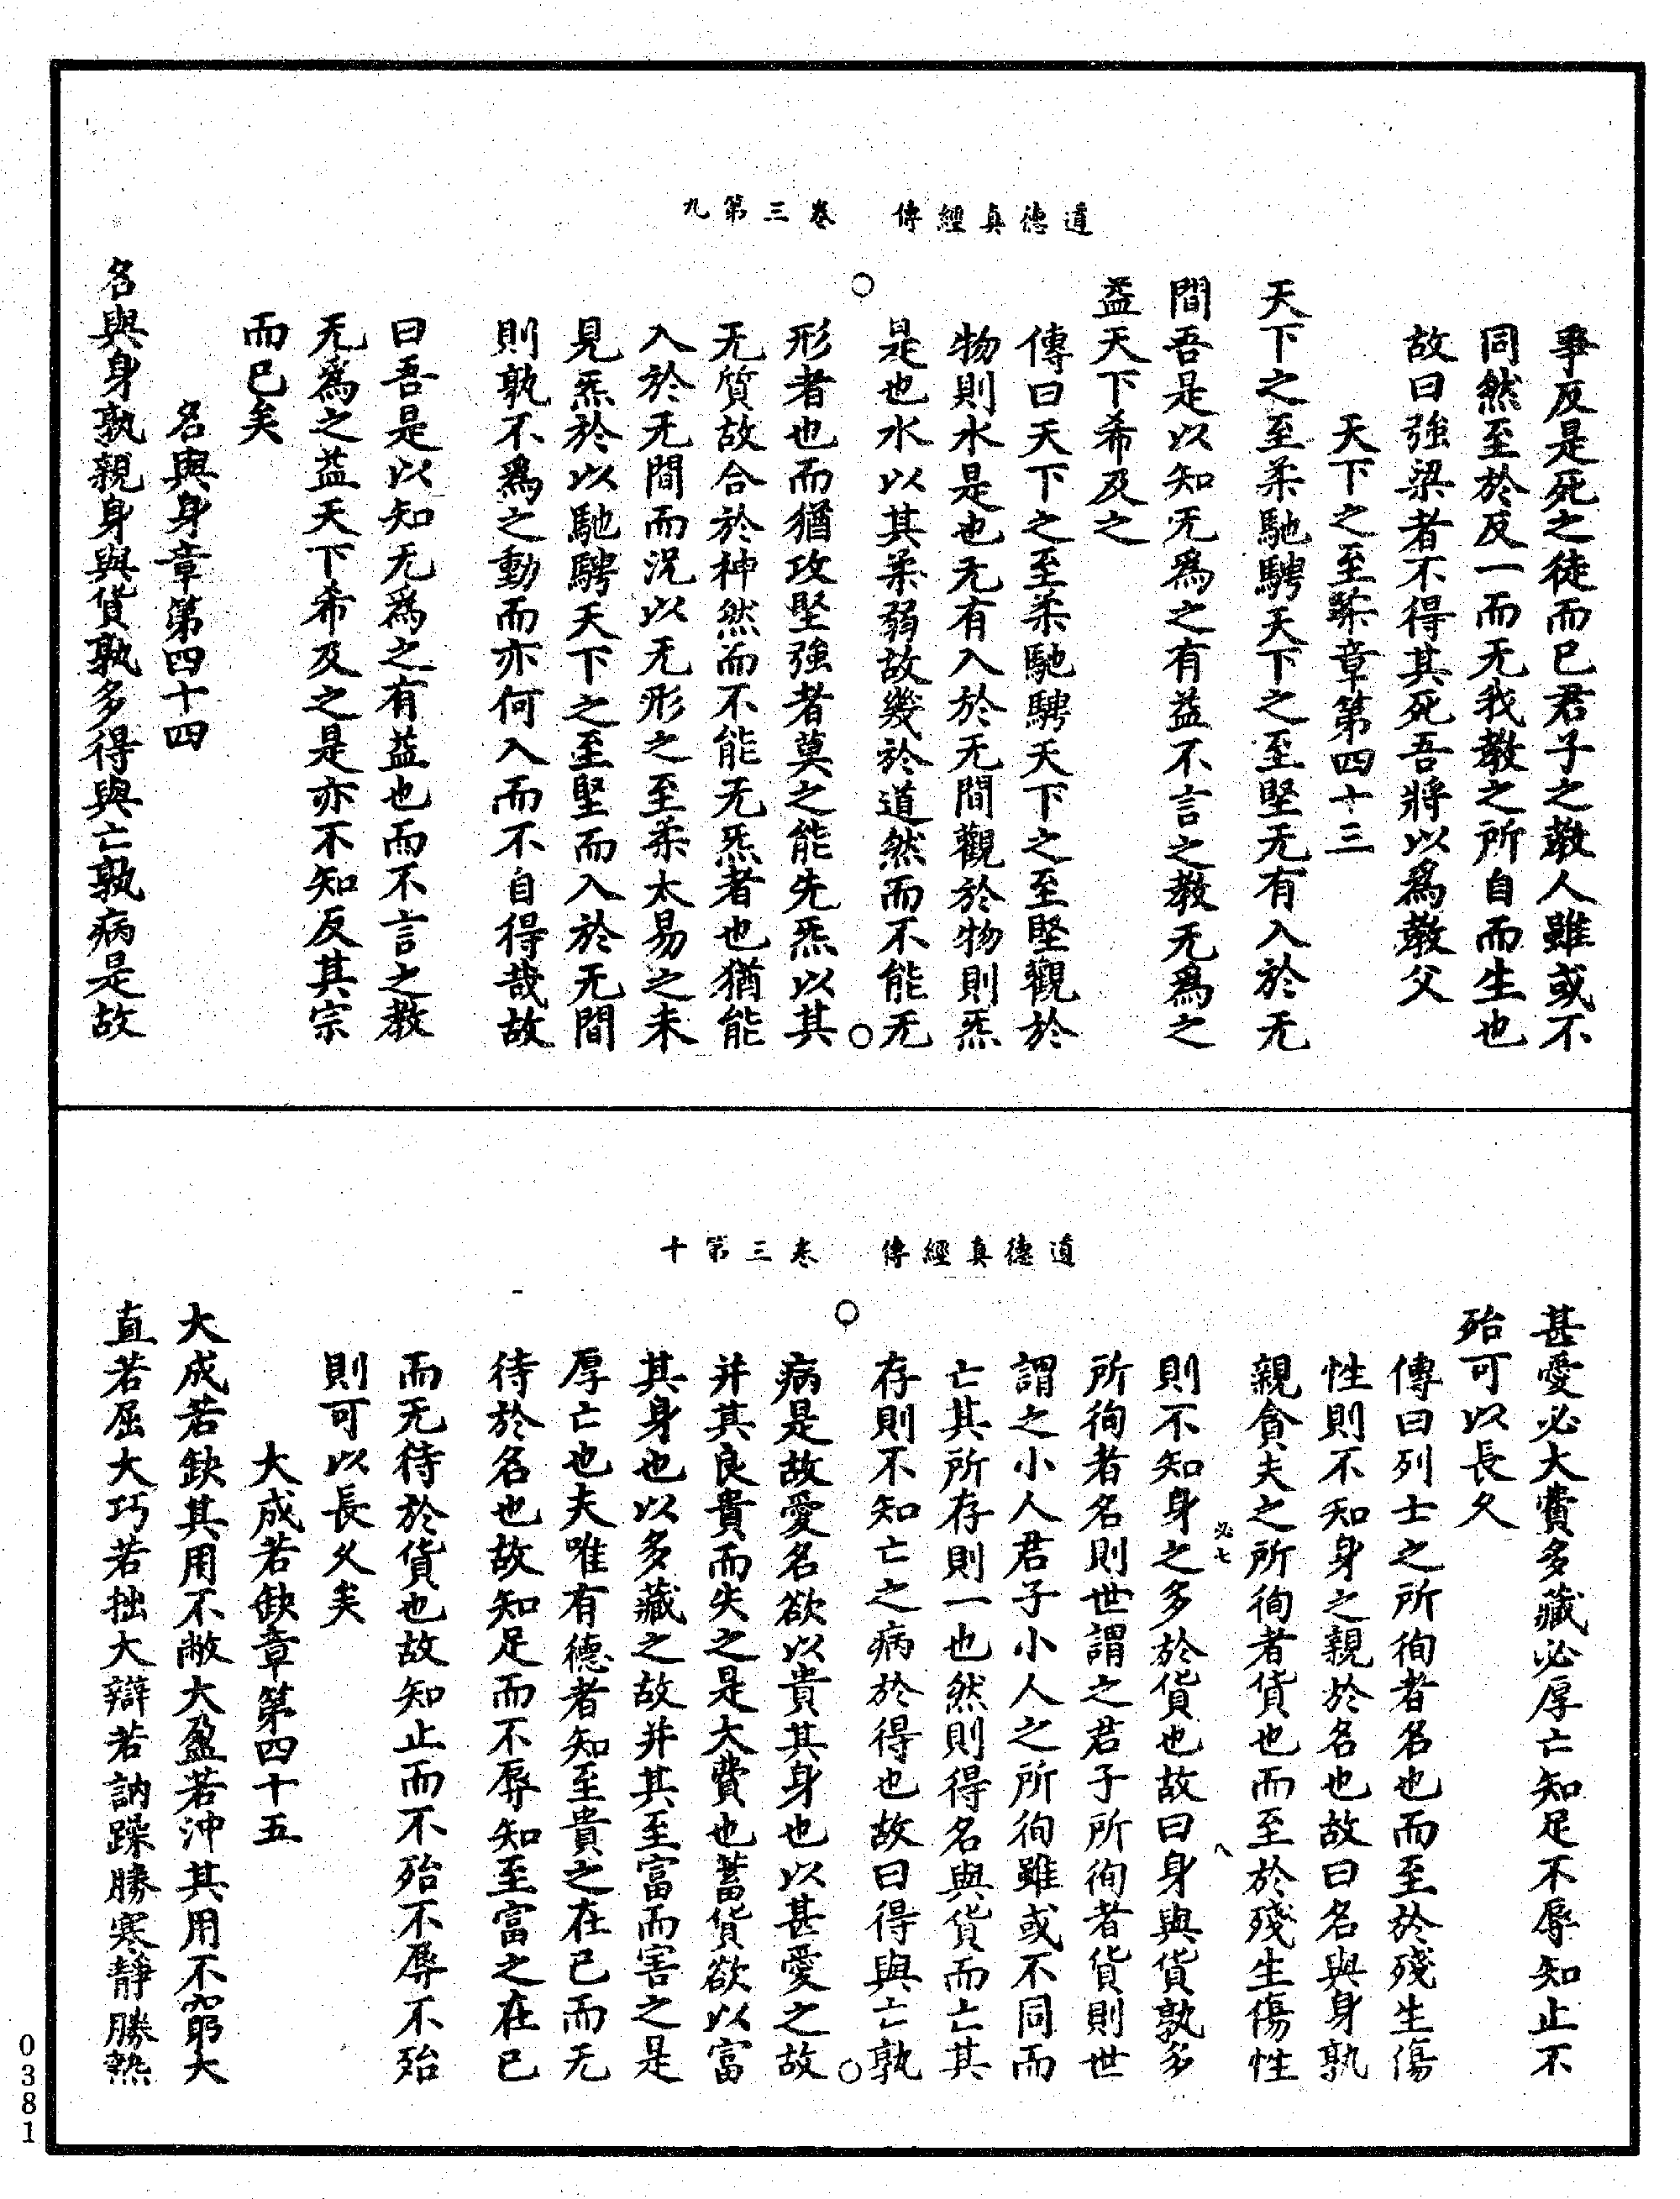 道德真經傳　卷三第九
事反是死之徒而已君子之教人雖或不
同然至於反一而无我教之所自而生也
故曰強梁者不得其死吾將以爲教父
天下之至柔章第四十三
天下之至柔馳騁天下之至堅无有入於无
間吾是以知无爲之有益不言之教无爲之
益天下希及之
傳曰天下之至柔馳騁天下之至堅觀於
物則水是也无有入於无間觀於物則炁
是也水以其柔弱故幾於道然而不能无
形者也而猶攻堅強者莫之能先炁以其
无質故合於神然而不能无炁者也猶能
入於无間而況以无形之至柔太易之未
見炁於以馳騁天下之至堅而入於无間
則孰不爲之動而亦何入而不自得哉故
曰吾是以知无爲之有益也而不言之教
无爲之益天下希及之是亦不知反其宗
而已矣
名與身章第四十四
名與身孰親身與貨孰多得與亡孰病是故
道德真經傳　卷三第十
甚愛必大費多藏必厚亡知足不辱知止不
殆可以長久
傳曰列士之所徇者名也而至於殘生傷
性則不知身之親於名也故曰名與身孰
親貪夫之所徇者貨也而至於殘生傷性
必七　八
則不知身之多於貨也故曰身與貨孰多
所徇者名則世謂之君子所徇者貨則世
謂之小人君子小人之所徇雖或不同而
亡其所存則一也然則得名與貨而亡其
存則不知亡之病於得也故曰得與亡孰
病是故愛名欲以貴其身也以甚愛之故
并其良貴而失之是大費也蓄貨欲以富
其身也以多藏之故并其至富而害之是
厚亡也夫唯有德者知至貴之在已而无
待於名也故知足而不辱知至富之在已
而无待於貨也故知止而不殆不辱不殆
則可以長久矣
大成若缺章第四十五
大成若缺其用不敝大盈若沖其用不窮大
直若屈大巧若拙大辯若訥躁勝寒靜勝熱
0381